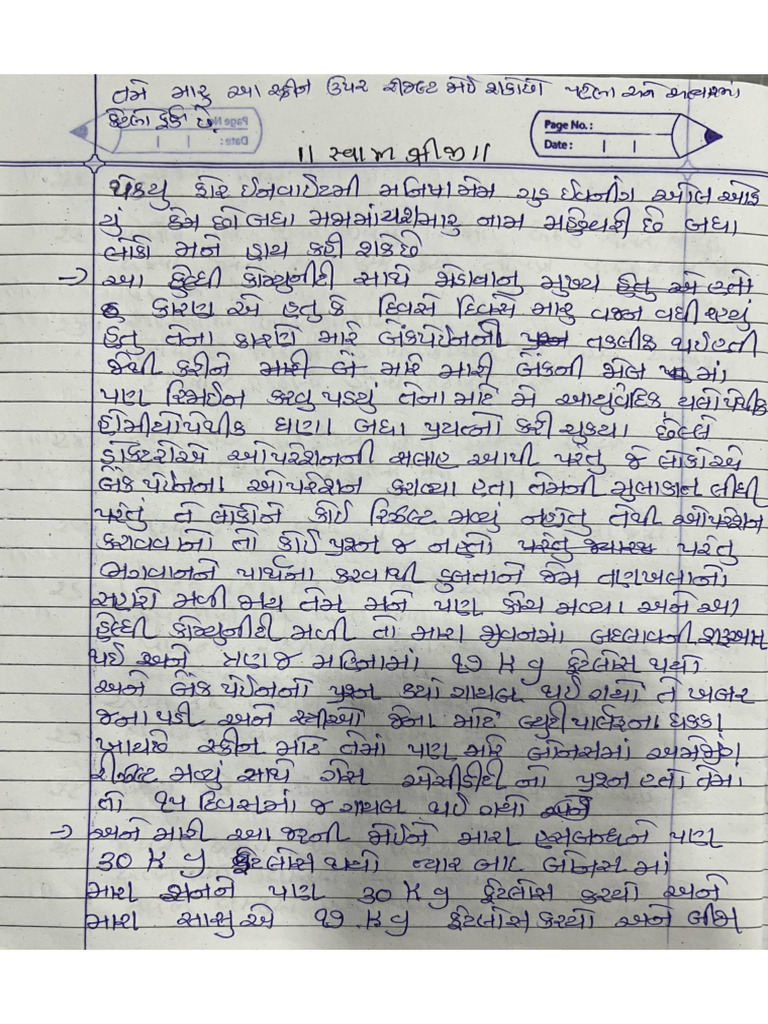 તમે મારૂ આ સ્ક્રીન ઉપર રીઝલ્ટ જોઈ શકોછો પહેલા અને અત્યારમાં
કેટલા ફેર્ક છે.
Page No. :
Date :
॥ સ્વામીશ્રીજી ॥
થેંકયુ ફોર ઈનવાઈટમી મનિષામેમ ગુડ ઈવનીંગ ઓલ ઓફ
યું કેમ છો બધા મજમાંયશમારૂ નામ મહેશ્વરી છે બધા
લોકો મને હાય કરી શકેછે
→ આ હેલ્ધી કોમ્યુનીટી સાથે જોડાવાનુ મુખ્ય હેતુ એ હતો
કારણ એ હતુ કે દિવસે દિવસે મારૂ વજન વધી રહ્યું
હતુ તેના કારણે મારે બેંકપેઈનની પ્રશ્ન તકલીફ થઈહતી
જેથી કરીને મારી બે મારે મારી બેંકની જોબ માં
પણ રિઝાઈન કરવુ પડયું તેના માટે મે આયુર્વેદિક એલોપેથીક
હોમીયોપેથીક ઘણા બધા પ્રયત્નો કરી ચુકયા છેલ્લે
ડોકટરોએ ઓપરેશનની સલાહ આપી પરંતુ જે લોકોએ
બેંક પેઈનના ઓપરેશન કરાવ્યા હતા તેમની મુલાકાત લીધી
પરંતું તે લોકોને કોઈ રિઝલ્ટ મળ્યું નહતુ તેથી ઓપરેશન
કરાવવાનો તો કોઈ પ્રશ્ન જ નહતો પરંતુ જ્યારે પરંતુ
ભગવાનને પ્રાર્થના કરવાથી ડુબતાને જેમ તણખલાનો
સહારો મળી જાય તેમ મને પણ કોચ મળ્યા અને આ
હેલ્ધી કોમ્યુનીટી મળી તો મારા જીવનમાં બદલાવની શરૂઆત
થઈ અને ત્રણ જ મહિનામાં ૧૭ Kg ફેટલોસ થયો
અને બેંક પેઈનનો પ્રશ્ન કયાં ગાયબ થઈ ગયો તે ખબર
જના પડી અને સ્ત્રીઓ જેના માટે બ્યુટી પાર્લરના ધક્કા
ખાયછે સ્કીન માટે તેમાં પણ મને બોનસમાં અમેઝીંગ
રીઝલ્ટ મળ્યું સાથે ગેસ એસીડીટી નો પ્રશ્ન હતો તેમા
તો ૧૫ દિવસમાં જ ગાયબ થઈ ગયો અને
→ અને મારી આ જરની જોઈને મારા હસબન્ધને પણ
30 Kg ફેટલોસ થયો ત્યાર બાદ બોનસ માં
મારા સનને પણ 30 Kg ફેટલોસ કરયો અને
મારા સાસુ એ ૧૭ Kg ફેટલોસ કરયો અને બીજા